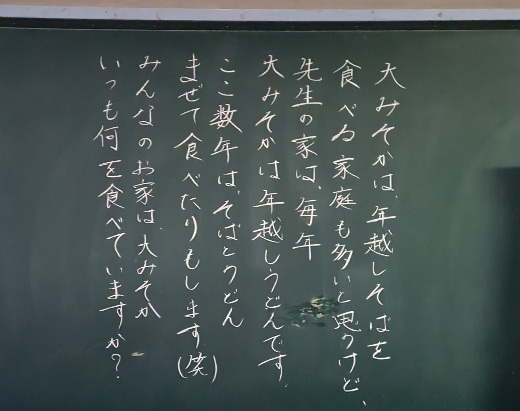 大みそかは、年越しそばを
食べる家庭も多いと思うけど、
先生の家は、毎年
大みそかは年越しうどんです。
ここ数年は、そばとうどん
まぜて食べたりもします(笑)
みんなのお家は、大みそか
いつも何を食べていますか？